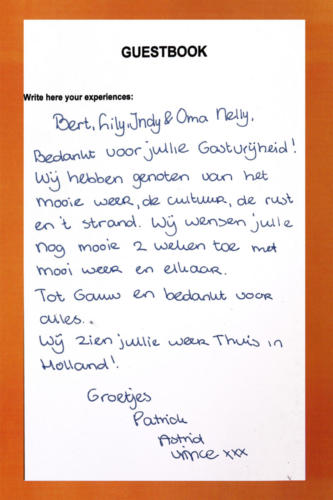 GUESTBOOK
Write here your experiences:
Bert, Lily, Indy & Oma Nelly,
Bedankt voor jullie Gastvrijheid!
Wij hebben genoten van het
mooie weer, de cultuur, de rust
en 't strand. Wij wensen julie
nog mooie 2 weken toe met
mooi weer en elkaar.
Tot Gauw en bedankt voor
alles..
Wij zien jullie weer Thuis in
Holland!
Groetjes
Patrick
Astrid
Vince xxx